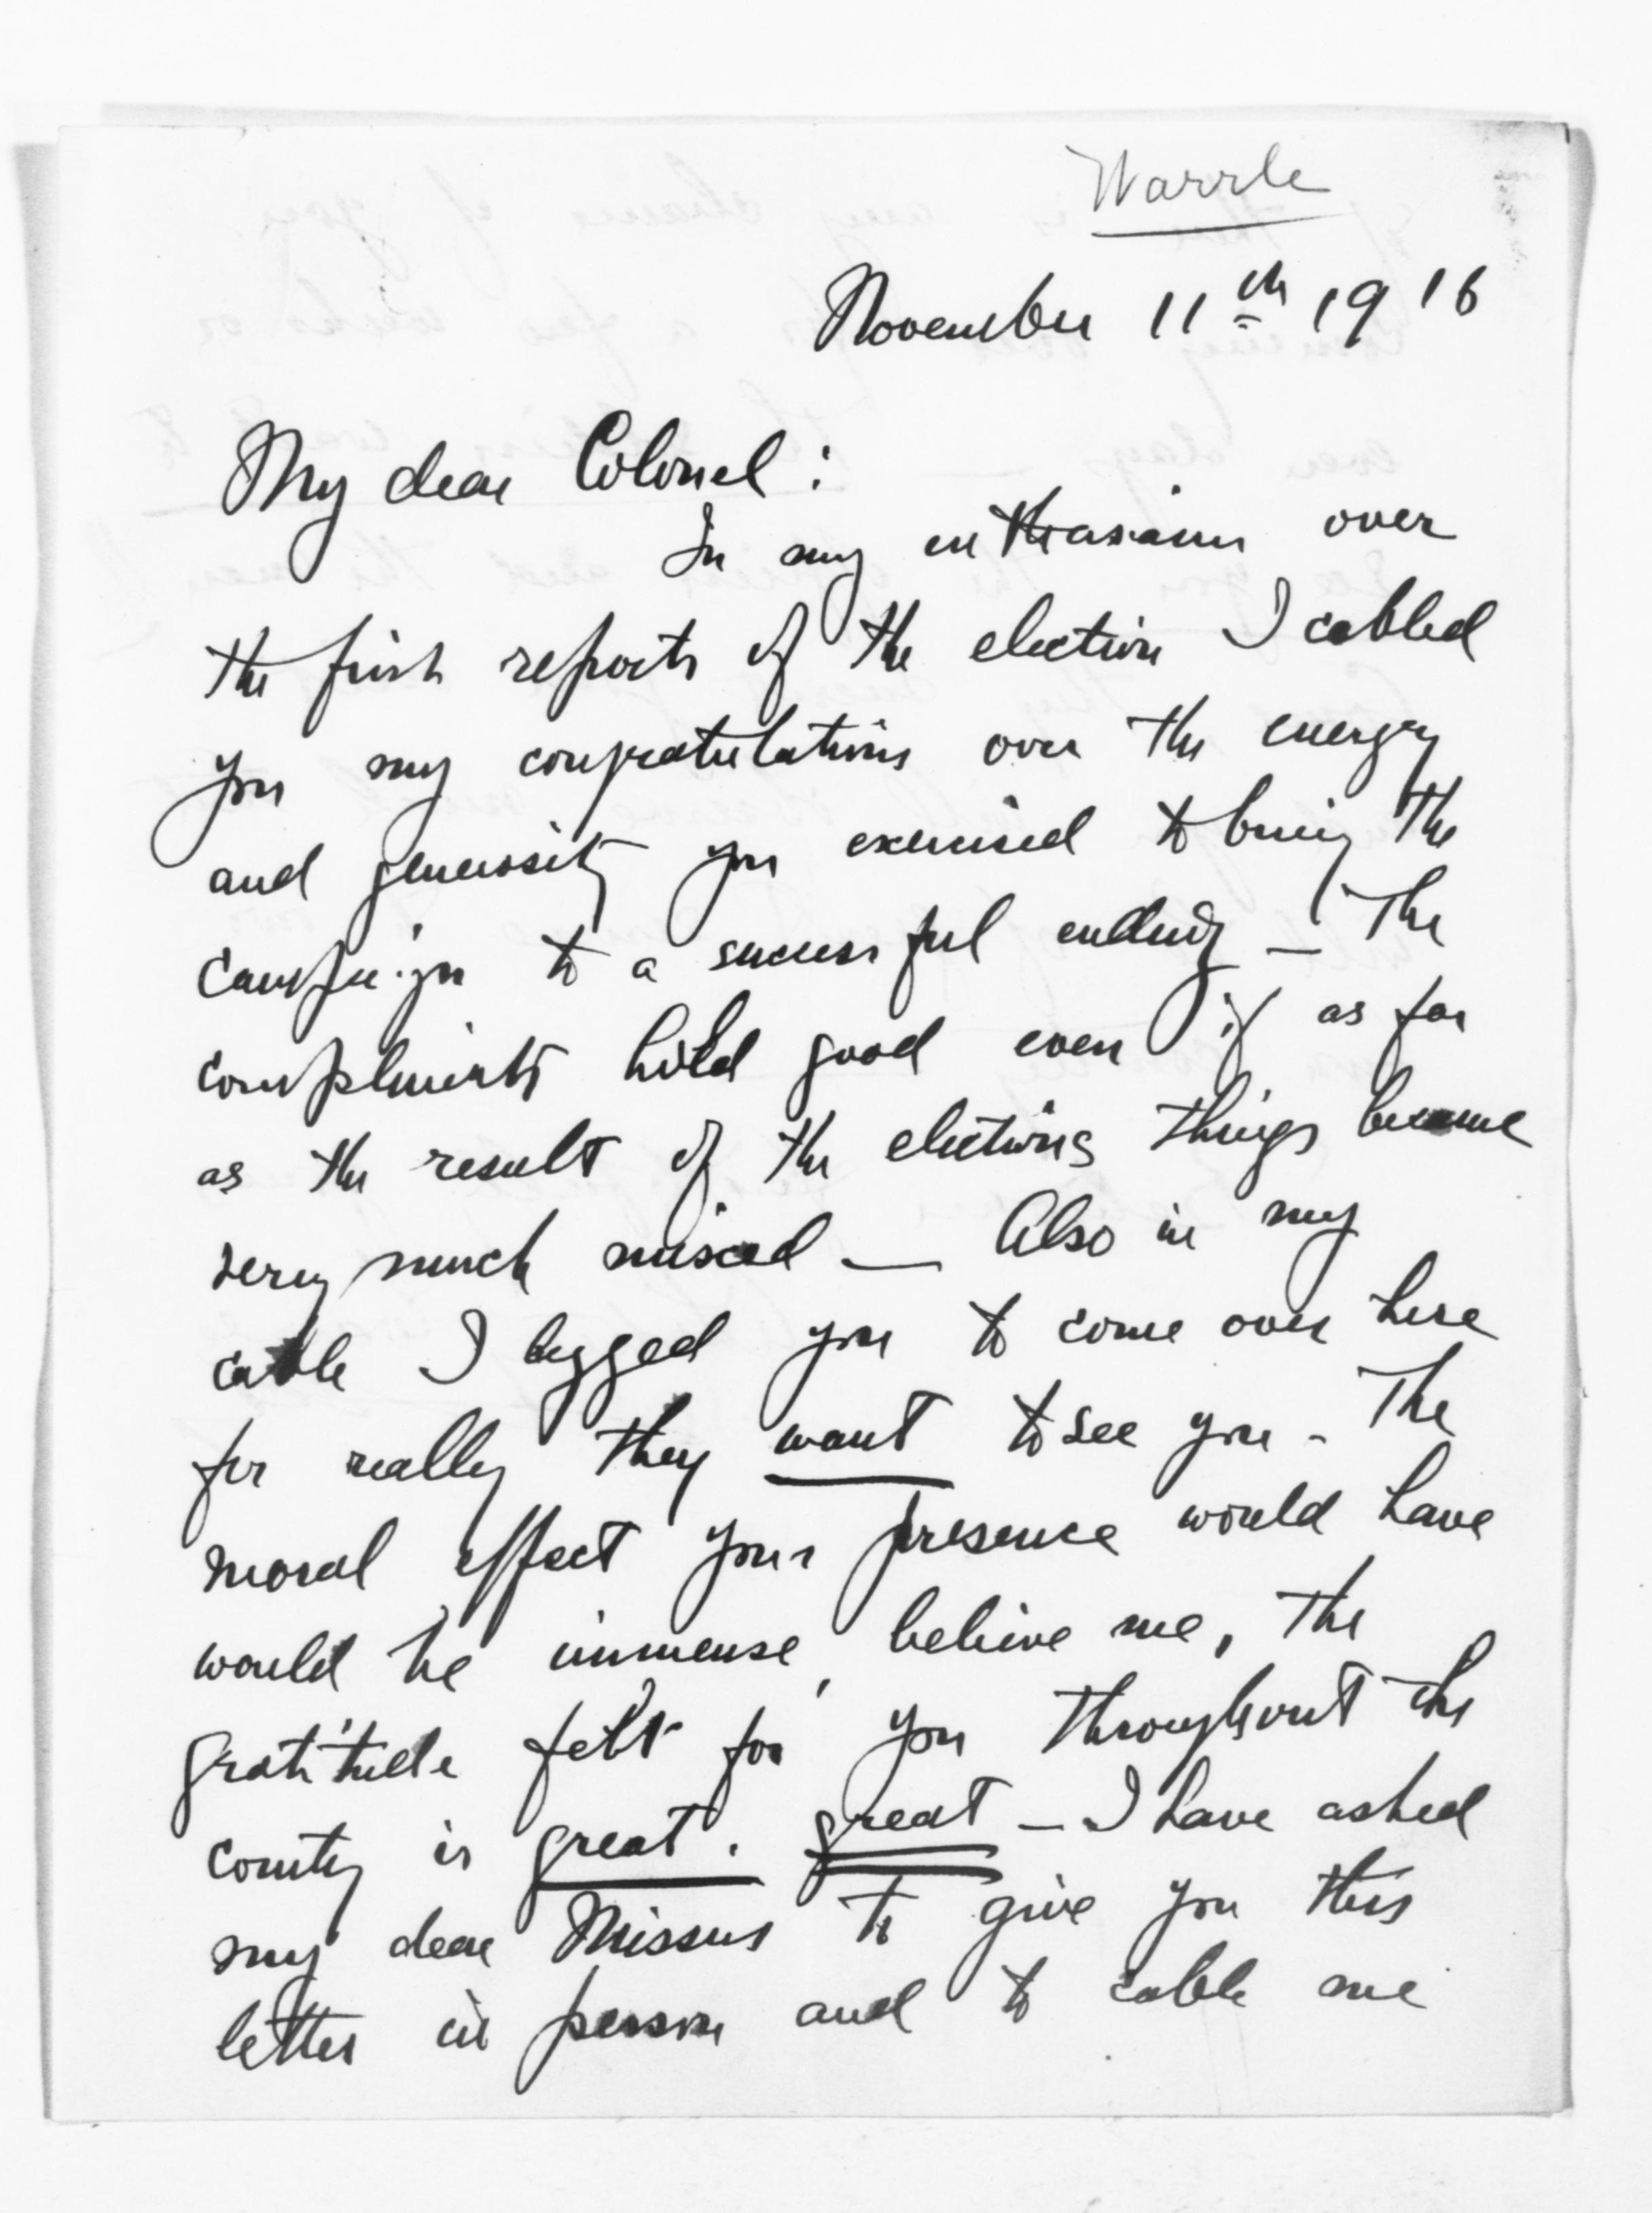 Warrle
November 11th 1916
My dear Colonel:
In my enthusiasm over
the first reports of the election I cabled
you my congratulations over the energy
and generosity you exercised to bring the
campaign to a successful ending — The
compliments hold good even if as far
as the result of the elections things became
very much mixed — Also in my
cable I begged you to come over here
for really they want to see you - The
moral effect your presence would have
would be immense, believe me, the
gratitude felt for you throughout the
country is great. great — I have asked
my dear Missus to give you this
letter in person and to cable me